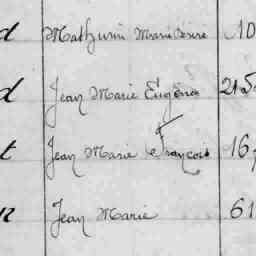 d Mathurin Marie 10
d Jean Marie Eugène 215
t Jean Marie François 167
n Jean Marie 61